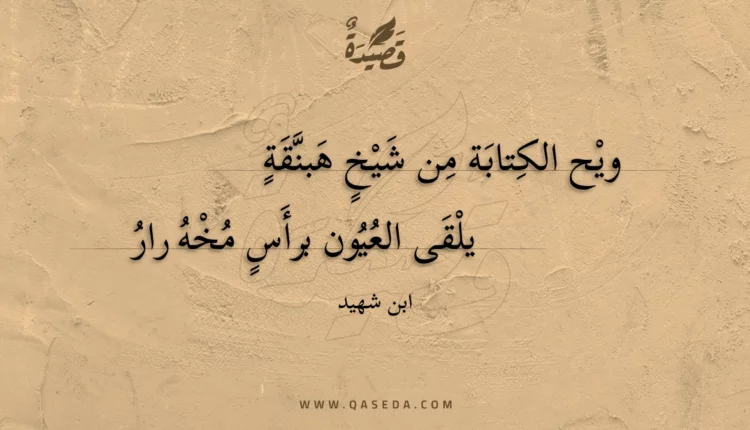 قَصِيدَةٌ
ويْح الكِتابَة مِن شَيْخٍ هَبنَّقَةٍ
يلْقَى العُيُون برأَسٍ مُخْهُ رارُ
ابن شهيد
WWW.QASEDA.COM